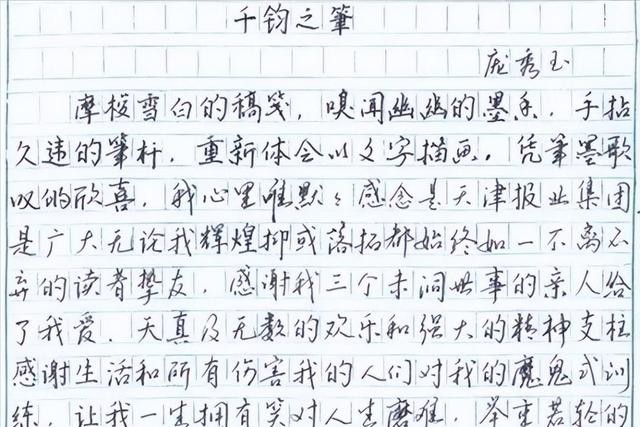 千钧之筆
庞秀玉
摩梭雪白的稿笺，嗅闻幽幽的墨香，手拈
久违的筆杆，重新体会以文字描画，凭筆墨歌
叹的欣喜，我心里唯默々感念是天津报业集团，
是广大无论我辉煌抑或落拓都始终如一不离不
弃的读者挚友，感谢我三个未洞世事的亲人给
了我爱、天真及无数的欢乐和强大的精神支柱
感谢生活和所有伤害我的人们对我的魔鬼式训
练，让我一生拥有笑对人生磨难，举重若轻的